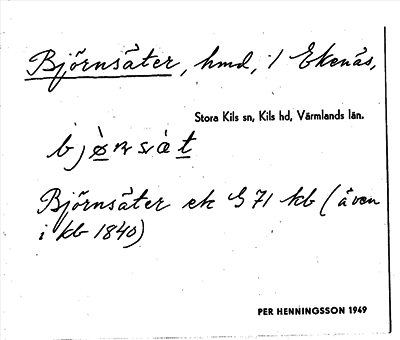 Björnsäter, hmd, i Ekenäs,
Stora Kils sn, Kils hd, Värmlands län.
Björnsäter ek G 71 kb (även
i kb 1840)
PER HENNINGSSON 1949